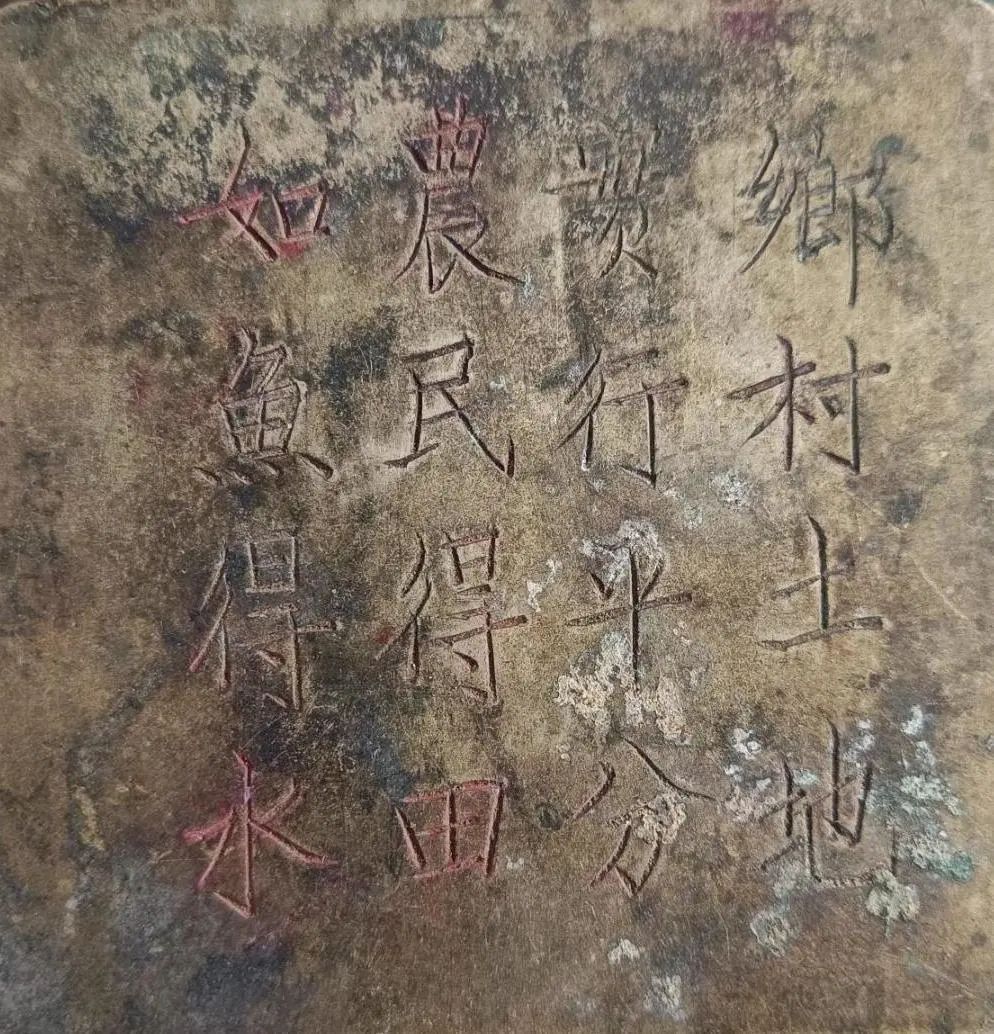 鄉村土地
行平分
農民得田
如魚得水